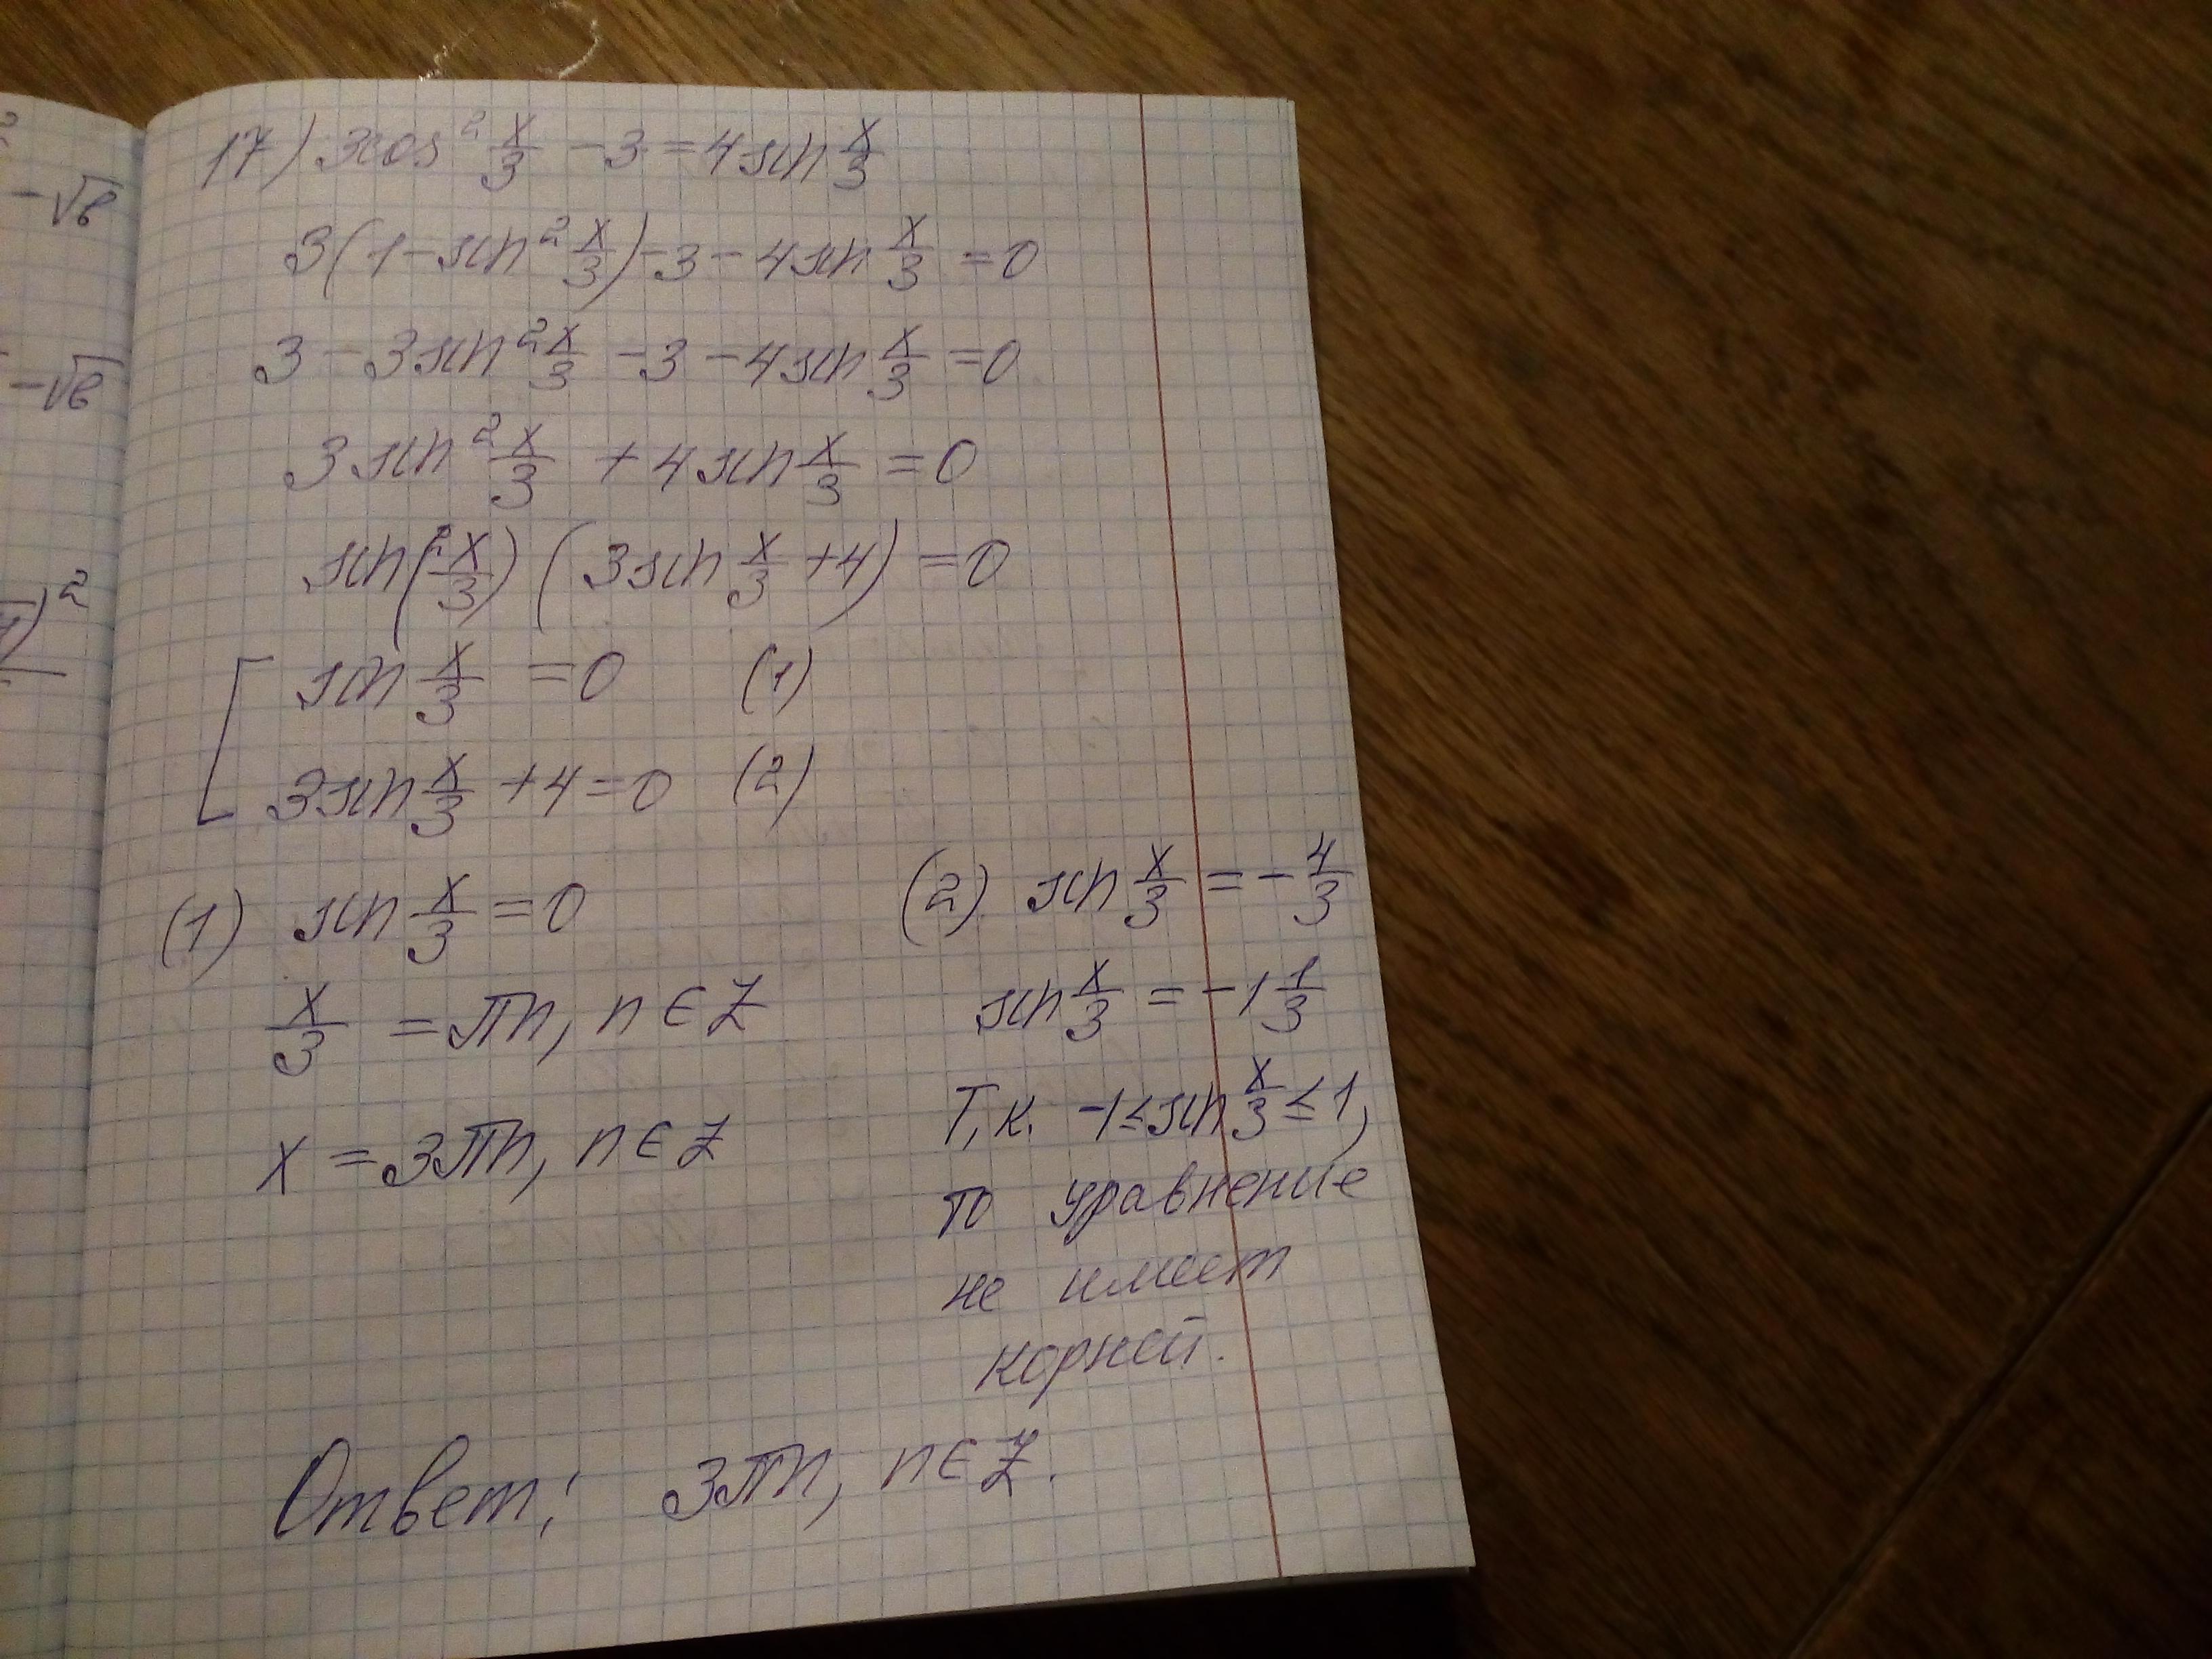 17) 3cos² x/3 - 3 = 4sin x/3
3(1 - sin² x/3) - 3 - 4sin x/3 = 0
3 - 3sin² x/3 - 3 - 4sin x/3 = 0
3sin² x/3 + 4sin x/3 = 0
sin(² x/3) (3sin x/3 + 4) = 0
[ sin x/3 = 0 (1)
3sin x/3 + 4 = 0 (2)
(1) sin x/3 = 0
x/3 = πn, n ∈ Z
x = 3πn, n ∈ Z
(2) sin x/3 = - 4/3
sin x/3 = -1 1/3
Т.к. -1 ≤ sin x/3 ≤ 1,
то уравнение
не имеет
корней.
Ответ: 3πn, n ∈ Z.
2
-√6
-√6
)²